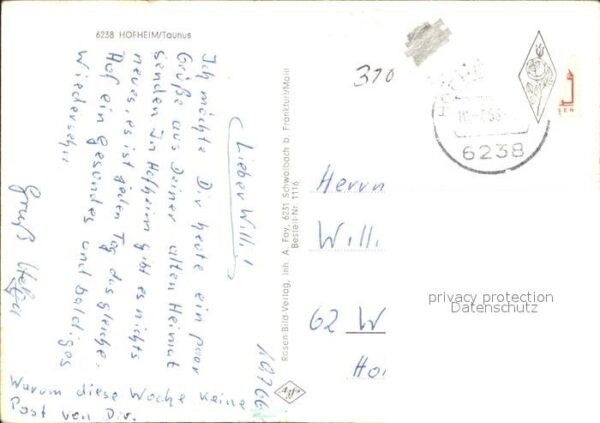 6238 HOFHEIM/Taunus
Lieber Willi!
Ich möchte Dir heute ein paar
Grüße aus Deiner alten Heimat
senden. In Hofheim gibt es nichts
neues, es ist jeden Tag das gleiche.
Auf ein gesundes und baldiges
Wiedersehn.
Gruß
Warum diese Woche keine
Post von Dir.
Rosen-Bild-Verlag, Inh. A. Fay, 6231 Schwalbach b. Frankfurt/Main
Bestell-Nr. 1116
Agfa
370
6238
Herrn
Willi
62 W
Ho
privacy protection
Datenschutz